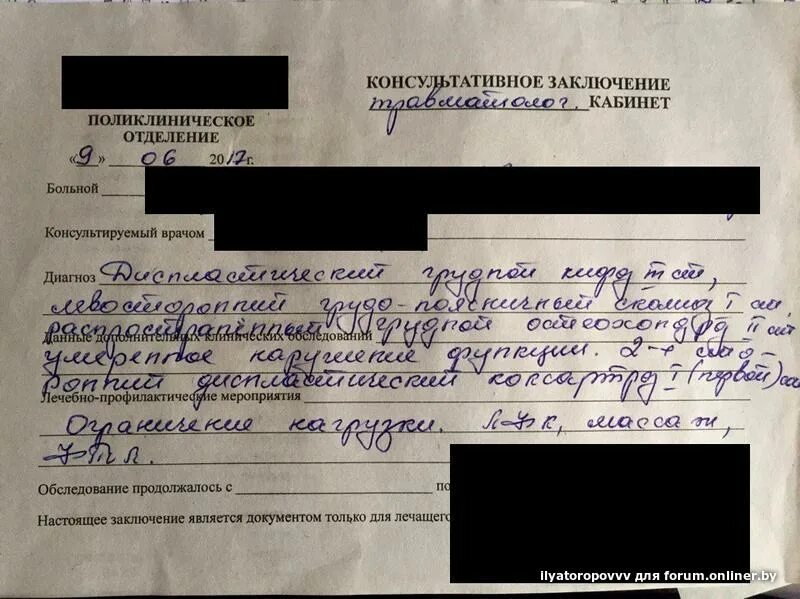 КОНСУЛЬТАТИВНОЕ ЗАКЛЮЧЕНИЕ
травматолог. КАБИНЕТ
ПОЛИКЛИНИЧЕСКОЕ
ОТДЕЛЕНИЕ
«9» 06 2017г.
Больной
Консультируемый врачом
Диагноз Диспластический грудной киф II ст,
левосторонний грудо-поясничный сколиоз I ст,
распространённый грудной остеохондроз II ст
Данные дополнительных клинических обследований
умеренное нарушение функции. 2-х сто-
ронний диспластический коксартроз I (первой) ст
Лечебно-профилактические мероприятия
Ограничение нагрузки. ЛФК, массаж,
ФТЛ.
Обследование продолжалось с по
Настоящее заключение является документом только для лечащего
ilyatoropovvv для forum.onliner.by